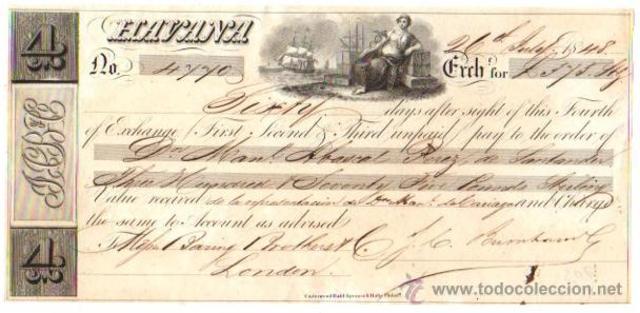 4
HAVANA
26th July 1848.
No. 4770 Exch. for £ 375. Stg
Sixty days after sight of this Fourth
of Exchange (First, Second & Third unpaid) pay to the order of
Don Manl. Abascal Perez, de Santander
Three Hundred & Seventy Five Pounds Sterling
Value received de la representacion de Don Manl. de and Charge
the same to Account as advised
To Messrs. Baring Brothers & Co.
London.
4
www.todocoleccion.net